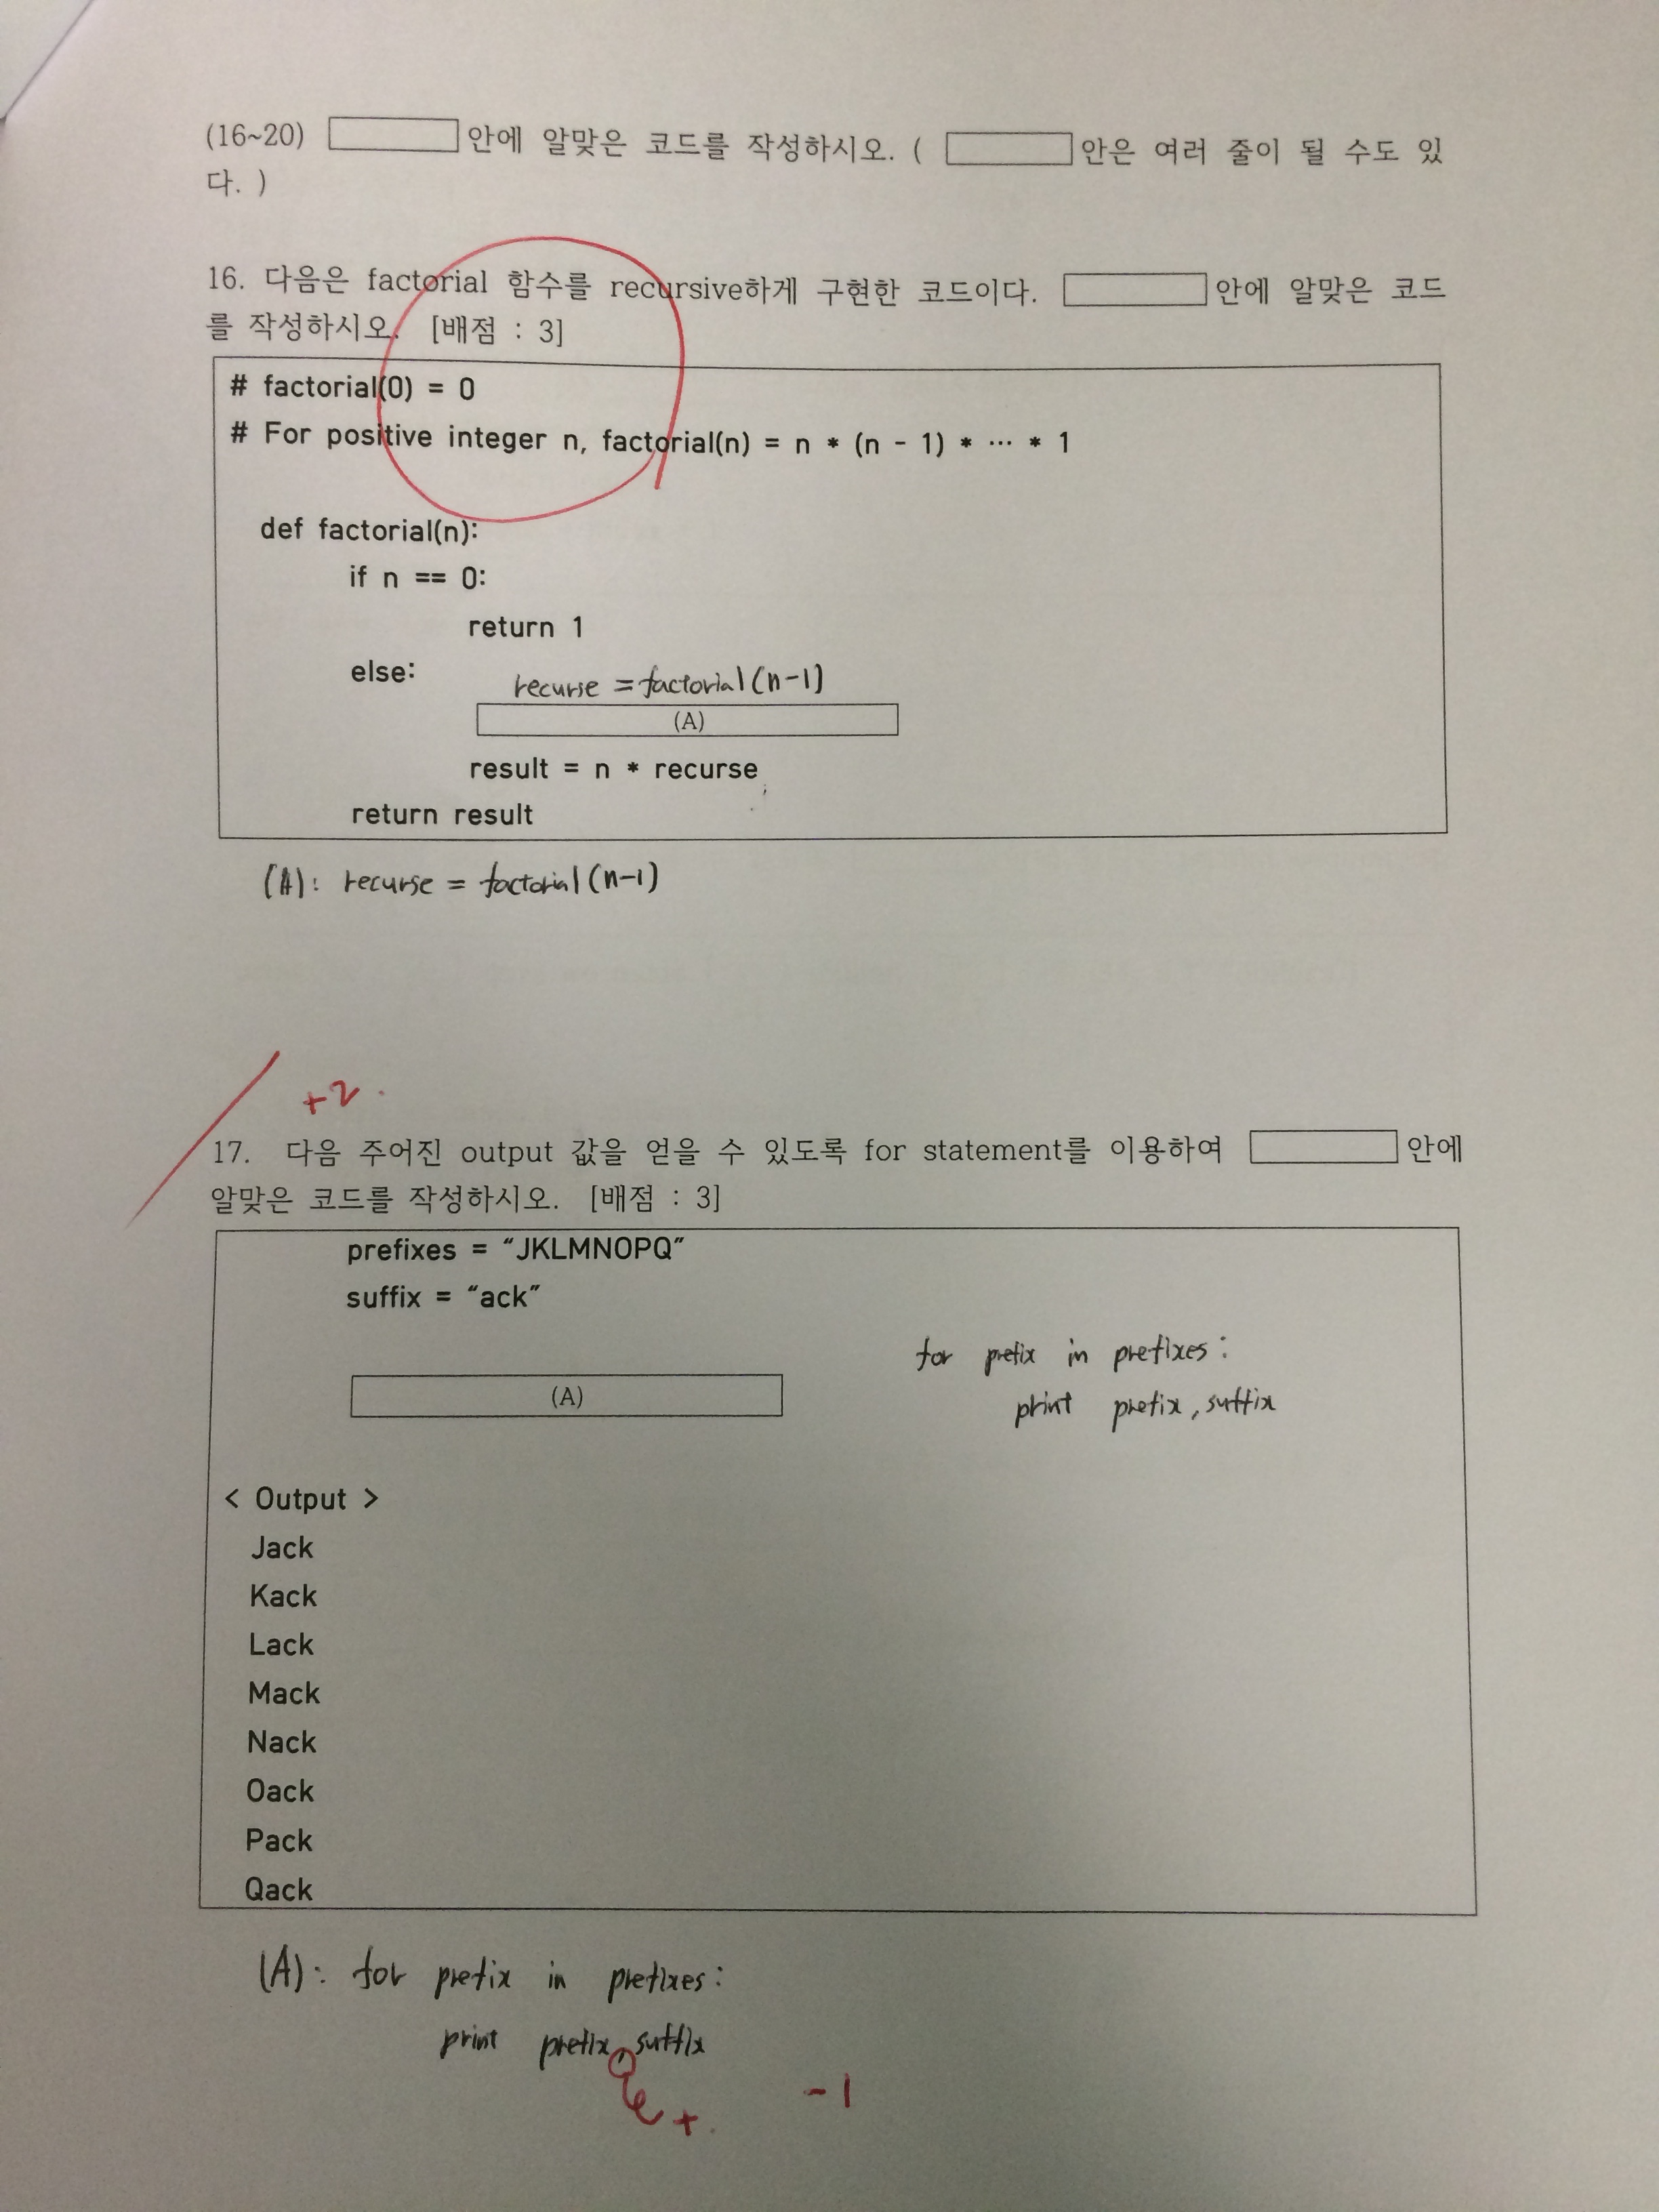 (16~20) 안에 알맞은 코드를 작성하시오. ( 안은 여러 줄이 될 수도 있
다. )
16. 다음은 factorial 함수를 recursive하게 구현한 코드이다. 안에 알맞은 코드
를 작성하시오. [배점 : 3]
# factorial(0) = 0
# For positive integer n, factorial(n) = n * (n - 1) * ··· * 1
def factorial(n):
if n == 0:
return 1
else:
recurse = factorial(n-1)
(A)
result = n * recurse
return result
(A): recurse = factorial(n-1)
+2
17. 다음 주어진 output 값을 얻을 수 있도록 for statement를 이용하여 안에
알맞은 코드를 작성하시오. [배점 : 3]
prefixes = “JKLMNOPQ”
suffix = “ack”
for prefix in prefixes:
(A)
print prefix, suffix
< Output >
Jack
Kack
Lack
Mack
Nack
Oack
Pack
Qack
(A): for prefix in prefixes:
print prefix, suffix
+
-1